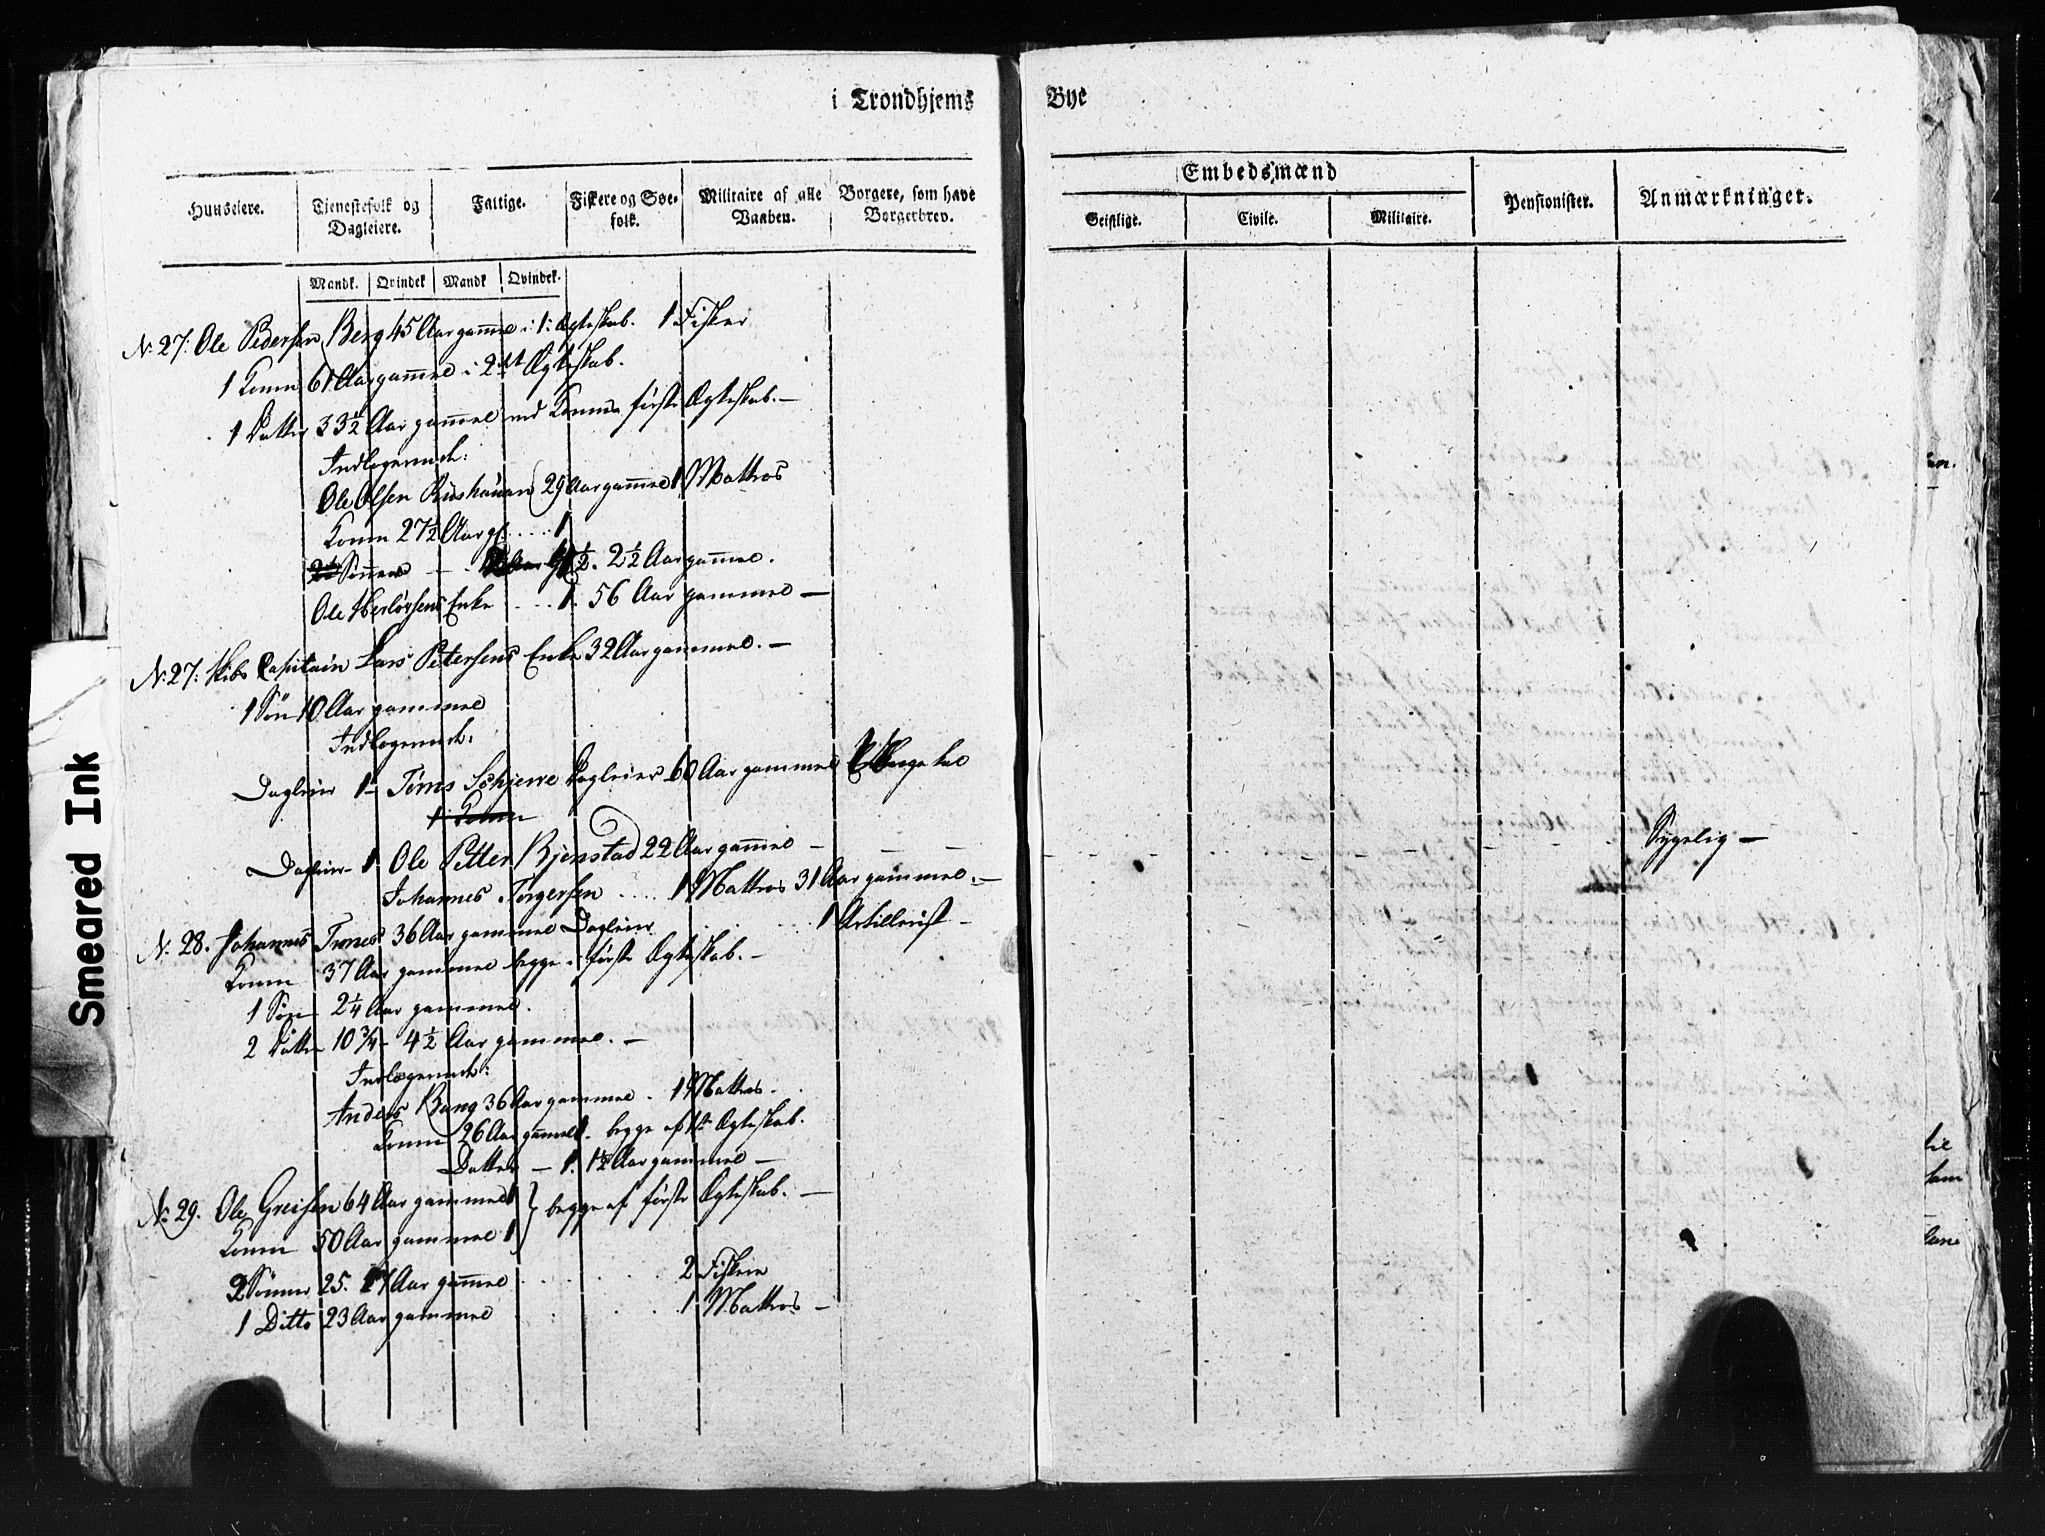 i Trondhjems Bye
Huuseiere.
Tjenestefolk og Dagleiere.
Fattige.
Fiskere og Søe-folk.
Militaire af alle Vaaben.
Borgere, som have Borgerbrev.
Embedsmænd
Geistlige.
Civile.
Militaire.
Pensionister.
Anmærkninger.
Mandk. Qvindek Mandk Qvindek.
N. 27: Ole Pedersen Berg 45 Aar gamel i 1: Ægteskab. 1 Fisker
1 Konen 61 Aar gamel i 2det Ægteskab.
1 Datter 33½ Aar gamel med Konens første Ægteskab. —
Indlogerende:
Ole Olsen 29 Aar gamel 1 Mattros
Konen 27½ Aar gl .... 1
Sønner 2½ Aar gamel.
Ole Enke .... 1. 56 Aar gammel —
N. 27: Skibs Capitain Lars Petersens Enke 32 Aar gammel. —
1 Søn 10 Aar gammel
Indlogerende:
Dagleier 1 Schjerve Dagleier 60 Aar gammel
1 Konen
Dagleier — 1 Ole Petter Bjenstad 22 Aar gamel — — — Sygelig —
Johannes Torgersen .... 1 Mattros 31 Aar gammel. —
N. 28. Johannes 36 Aar gammel Dagleier . . . 1 Artillerist —
Konen 37 Aar gammel begge i første Ægteskab. —
1 Søn 2¼ Aar gammel.
2 Døttre 10¾ — 4½ Aar gammel. —
Indlogerende:
Anders Bang 36 Aar gammel. 1 Mattros.
Konen 26 Aar gamel 1. begge af 1te Ægteskab.
Datter — 1. 1½ Aar gammel —
N. 29. Ole Greisen 64 Aar gammel 1 } begge af første Ægteskab. —
Konen 50 Aar gammel 1
2 Sønner 25. 17 Aar gamel . . . . . 2 Fiskere
1 Ditto 23 Aar gammel . . . . . 1 Mattros —
Smeared Ink